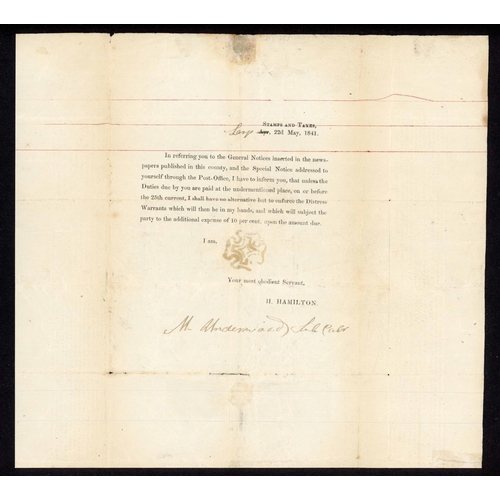 STAMPS AND TAXES,
Largs Ayr, 22d May, 1841.
In referring you to the General Notices inserted in the news-
papers published in this county, and the Special Notice addressed to
yourself through the Post-Office, I have to inform you, that unless the
Duties due by you are paid at the undermentioned place, on or before
the 25th current, I shall have no alternative but to enforce the Distress
Warrants which will then be in my hands, and which will subject the
party to the additional expense of 10 per cent. upon the amount due.
I am,
Your most obedient Servant,
H. HAMILTON.
Underwood